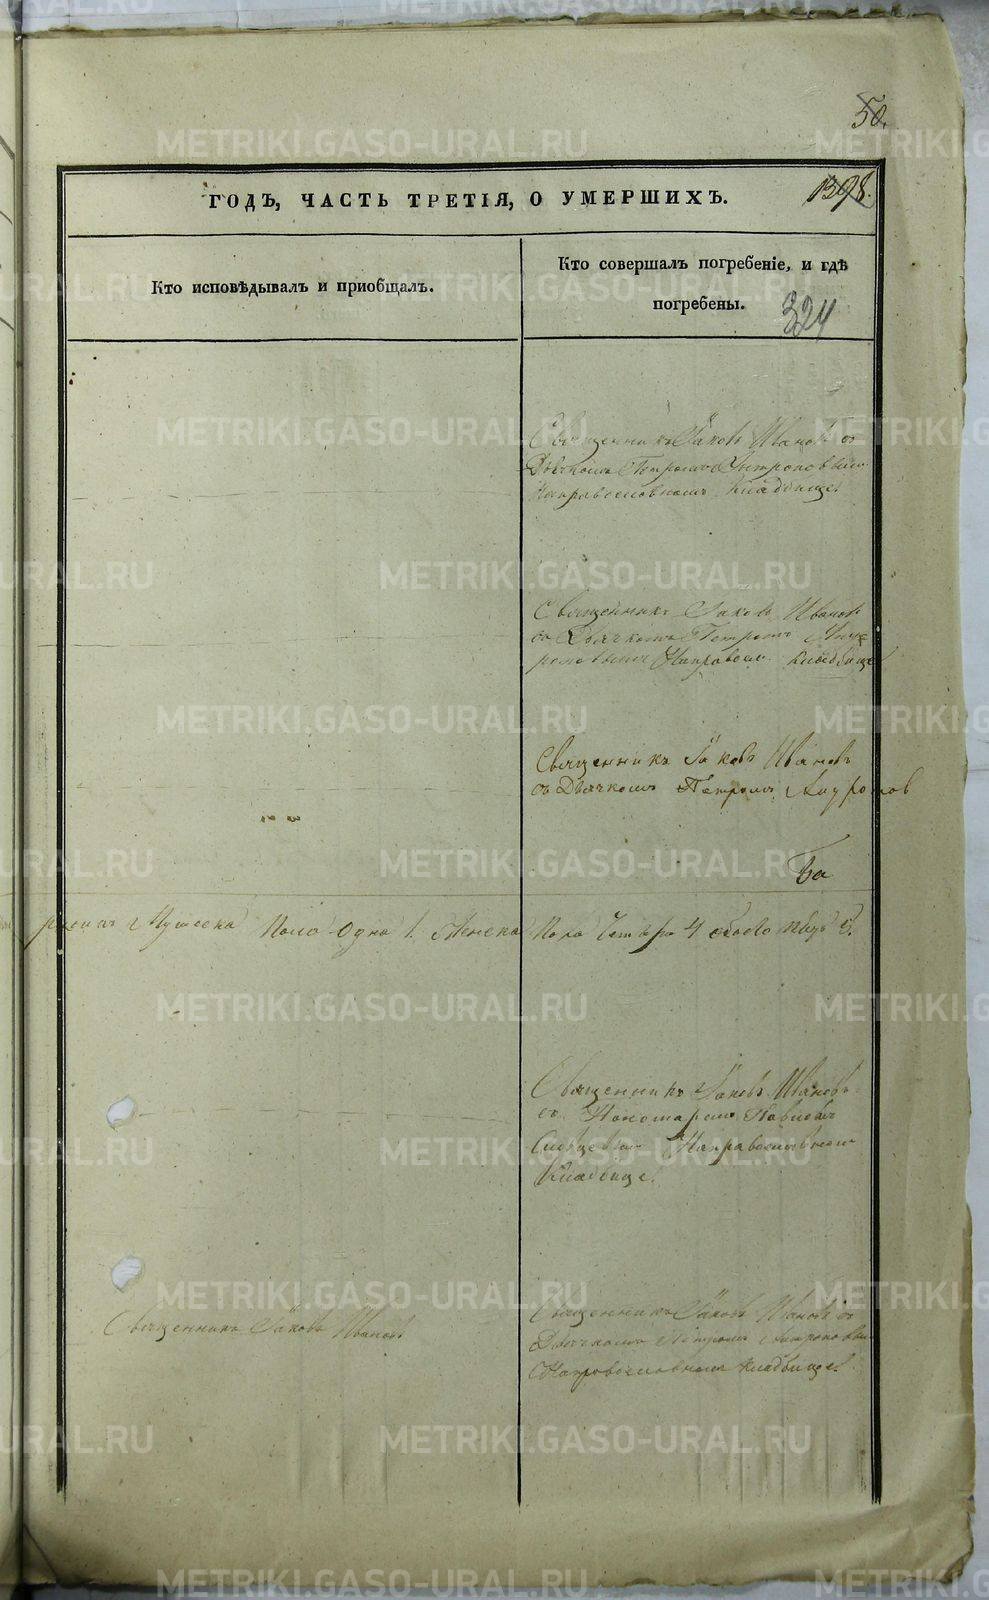 50.
ГОДЪ, ЧАСТЬ ТРЕТІЯ, О УМЕРШИХЪ.
1398.
Кто исповѣдывалъ и приобщалъ.
Кто совершалъ погребеніе, и гдѣ
погребены.
324
Священникъ Іаковъ Ивановъ съ
Дьячкомъ Петромъ Андроновымъ
Направославномъ кладбище.
Священникъ Іаковъ Ивановъ
съ Дьячкомъ Петромъ
Направосл. кладбище
Священникъ Іаковъ Ивановъ
съ Дьячкомъ Петромъ
Мужеска Пола Одна 1. Женска Пола Четыре 4 обоево 5.
Священникъ Іаковъ Ивановъ
съ Пономаремъ
Направославномъ
Кладбище.
Священникъ Іаковъ Ивановъ
Священникъ Іаковъ Ивановъ съ
Дьячкомъ Петромъ
Направославномъ кладбище.
METRIKI.GASO-URAL.RU